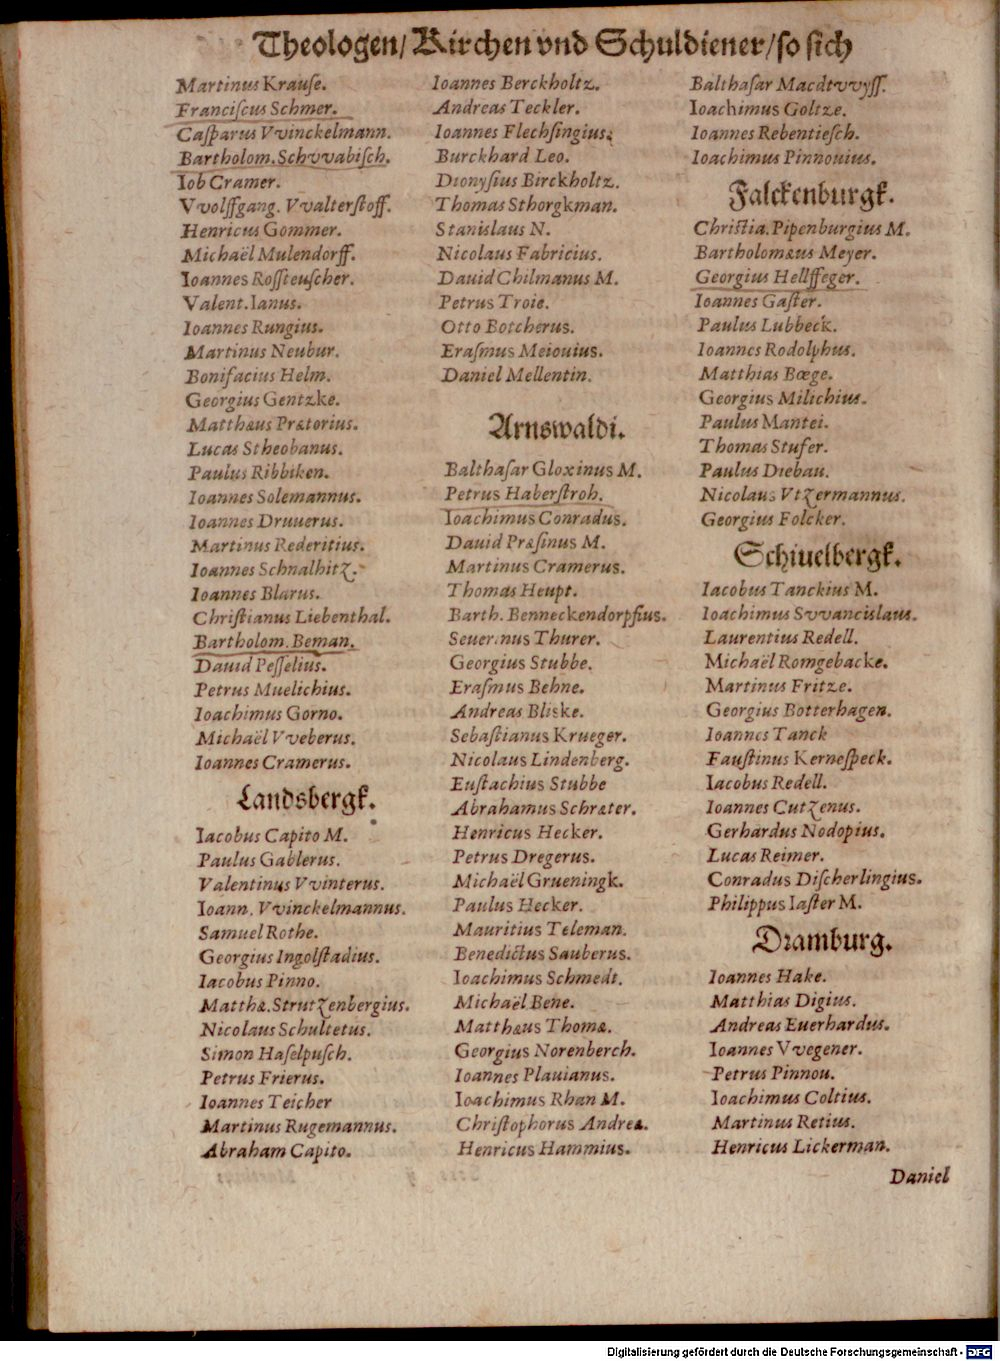 Theologen/ Kirchen vnd Schuldiener/ so sich
Martinus Krauſe.
Franciſcus Schmer.
Caſparus Vvinckelmann.
Bartholom. Schvvabiſch.
Iob Cramer.
Vvolffgang. Vvalterſtoff.
Henricus Gommer.
Michaël Mulendorff.
Ioannes Roſſteuſcher.
Valent. Ianus.
Ioannes Rungius.
Martinus Neubur.
Bonifacius Helm.
Georgius Gentzke.
Matthæus Prætorius.
Lucas Stheobanus.
Paulus Ribbiken.
Ioannes Solemannus.
Ioannes Druuerus.
Martinus Rederitius.
Ioannes Schnalhitz.
Ioannes Blarus.
Chriſtianus Liebenthal.
Bartholom. Beman.
Dauid Peſſelius.
Petrus Muelichius.
Ioachimus Gorno.
Michaël Vveberus.
Ioannes Cramerus.
Landsbergk.
Iacobus Capito M.
Paulus Gablerus.
Valentinus Vvinterus.
Ioann. Vvinckelmannus.
Samuel Rothe.
Georgius Ingolſtadius.
Iacobus Pinno.
Matthæ. Strutzenbergius.
Nicolaus Schultetus.
Simon Haſelpuſch.
Petrus Frierus.
Ioannes Teicher
Martinus Rugemannus.
Abraham Capito.
Ioannes Berckholtz.
Andreas Teckler.
Ioannes Flechſingius.
Burckhard Leo.
Dionyſius Birckholtz.
Thomas Sthorgkman.
Stanislaus N.
Nicolaus Fabricius.
Dauid Chilmanus M.
Petrus Troie.
Otto Botcherus.
Eraſmus Meiouius.
Daniel Mellentin.
Arnswaldi.
Balthaſar Gloxinus M.
Petrus Haberſtroh.
Ioachimus Conradus.
Dauid Præſinus M.
Martinus Cramerus.
Thomas Heupt.
Barth. Benneckendorpſius.
Seuerinus Thurer.
Georgius Stubbe.
Eraſmus Behne.
Andreas Bliske.
Sebaſtianus Krueger.
Nicolaus Lindenberg.
Euſtachius Stubbe
Abrahamus Schræter.
Henricus Hecker.
Petrus Dregerus.
Michaël Grueningk.
Paulus Hecker.
Mauritius Teleman.
Benedictus Sauberus.
Ioachimus Schmedt.
Michaël Bene.
Matthæus Thomæ.
Georgius Norenberch.
Ioannes Plauianus.
Ioachimus Rhan M.
Chriſtophorus Andreæ.
Henricus Hammius.
Balthaſar Macdtvvyſſ.
Ioachimus Goltze.
Ioannes Rebentieſch.
Ioachimus Pinnouius.
Falckenburgk.
Chriſtia. Pipenburgius M.
Bartholomæus Meyer.
Georgius Hellffeger.
Ioannes Gaſter.
Paulus Lubbeck.
Ioannes Rodolphus.
Matthias Bœge.
Georgius Milichius.
Paulus Mantei.
Thomas Stufer.
Paulus Diebau.
Nicolaus Vtzermannus.
Georgius Folcker.
Schiuelbergk.
Iacobus Tanckius M.
Ioachimus Svvancislaus.
Laurentius Redell.
Michaël Romgebacke.
Martinus Fritze.
Georgius Botterhagen.
Ioannes Tanck
Fauſtinus Kerneſpeck.
Iacobus Redell.
Ioannes Cutzenus.
Gerhardus Nodopius.
Lucas Reimer.
Conradus Diſcherlingius.
Philippus Iaſter M.
Dramburg.
Ioannes Hake.
Matthias Digius.
Andreas Euerhardus.
Ioannes Vvegener.
Petrus Pinnou.
Ioachimus Coltius.
Martinus Retius.
Henricus Lickerman.
Daniel
Digitalisierung gefördert durch die Deutsche Forschungsgemeinschaft - DFG